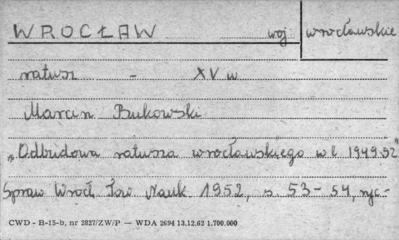 WROCŁAW woj. wrocławskie
ratusz - XV w
Marcin Bukowski
„Odbudowa ratusza wrocławskiego w l 1949.52"
Spraw Wrocł Tow Nauk 1952, s. 53-54, ryc-
CWD - B-15-b, nr 2827/ZW/P — WDA 2694 13.12.62 1.700.000